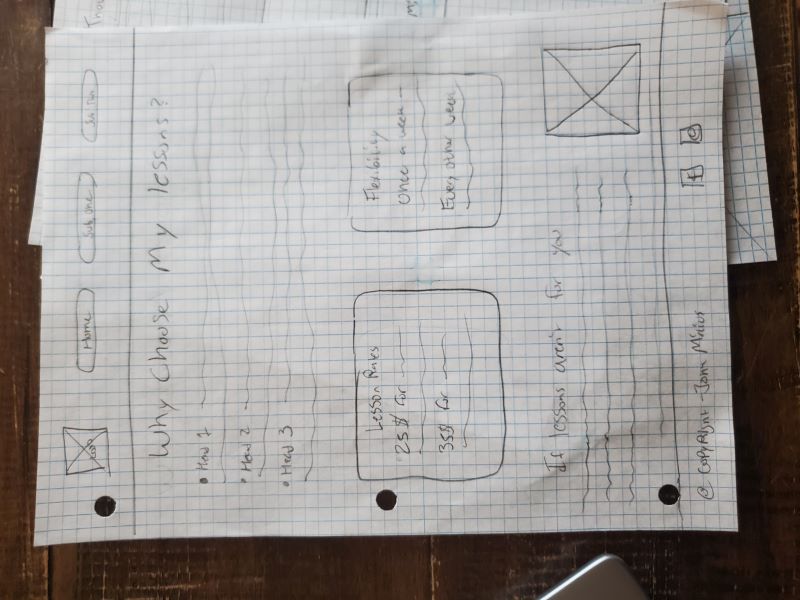 Logo
Home
Sub one
Sub Two
Why Choose My lessons?
• Head 1
• Head 2
• Head 3
Lesson Rates
25$ for
35$ for
Flexibility
Once a week
Every other week
If lessons aren't for you
© Copyright - Jona
f